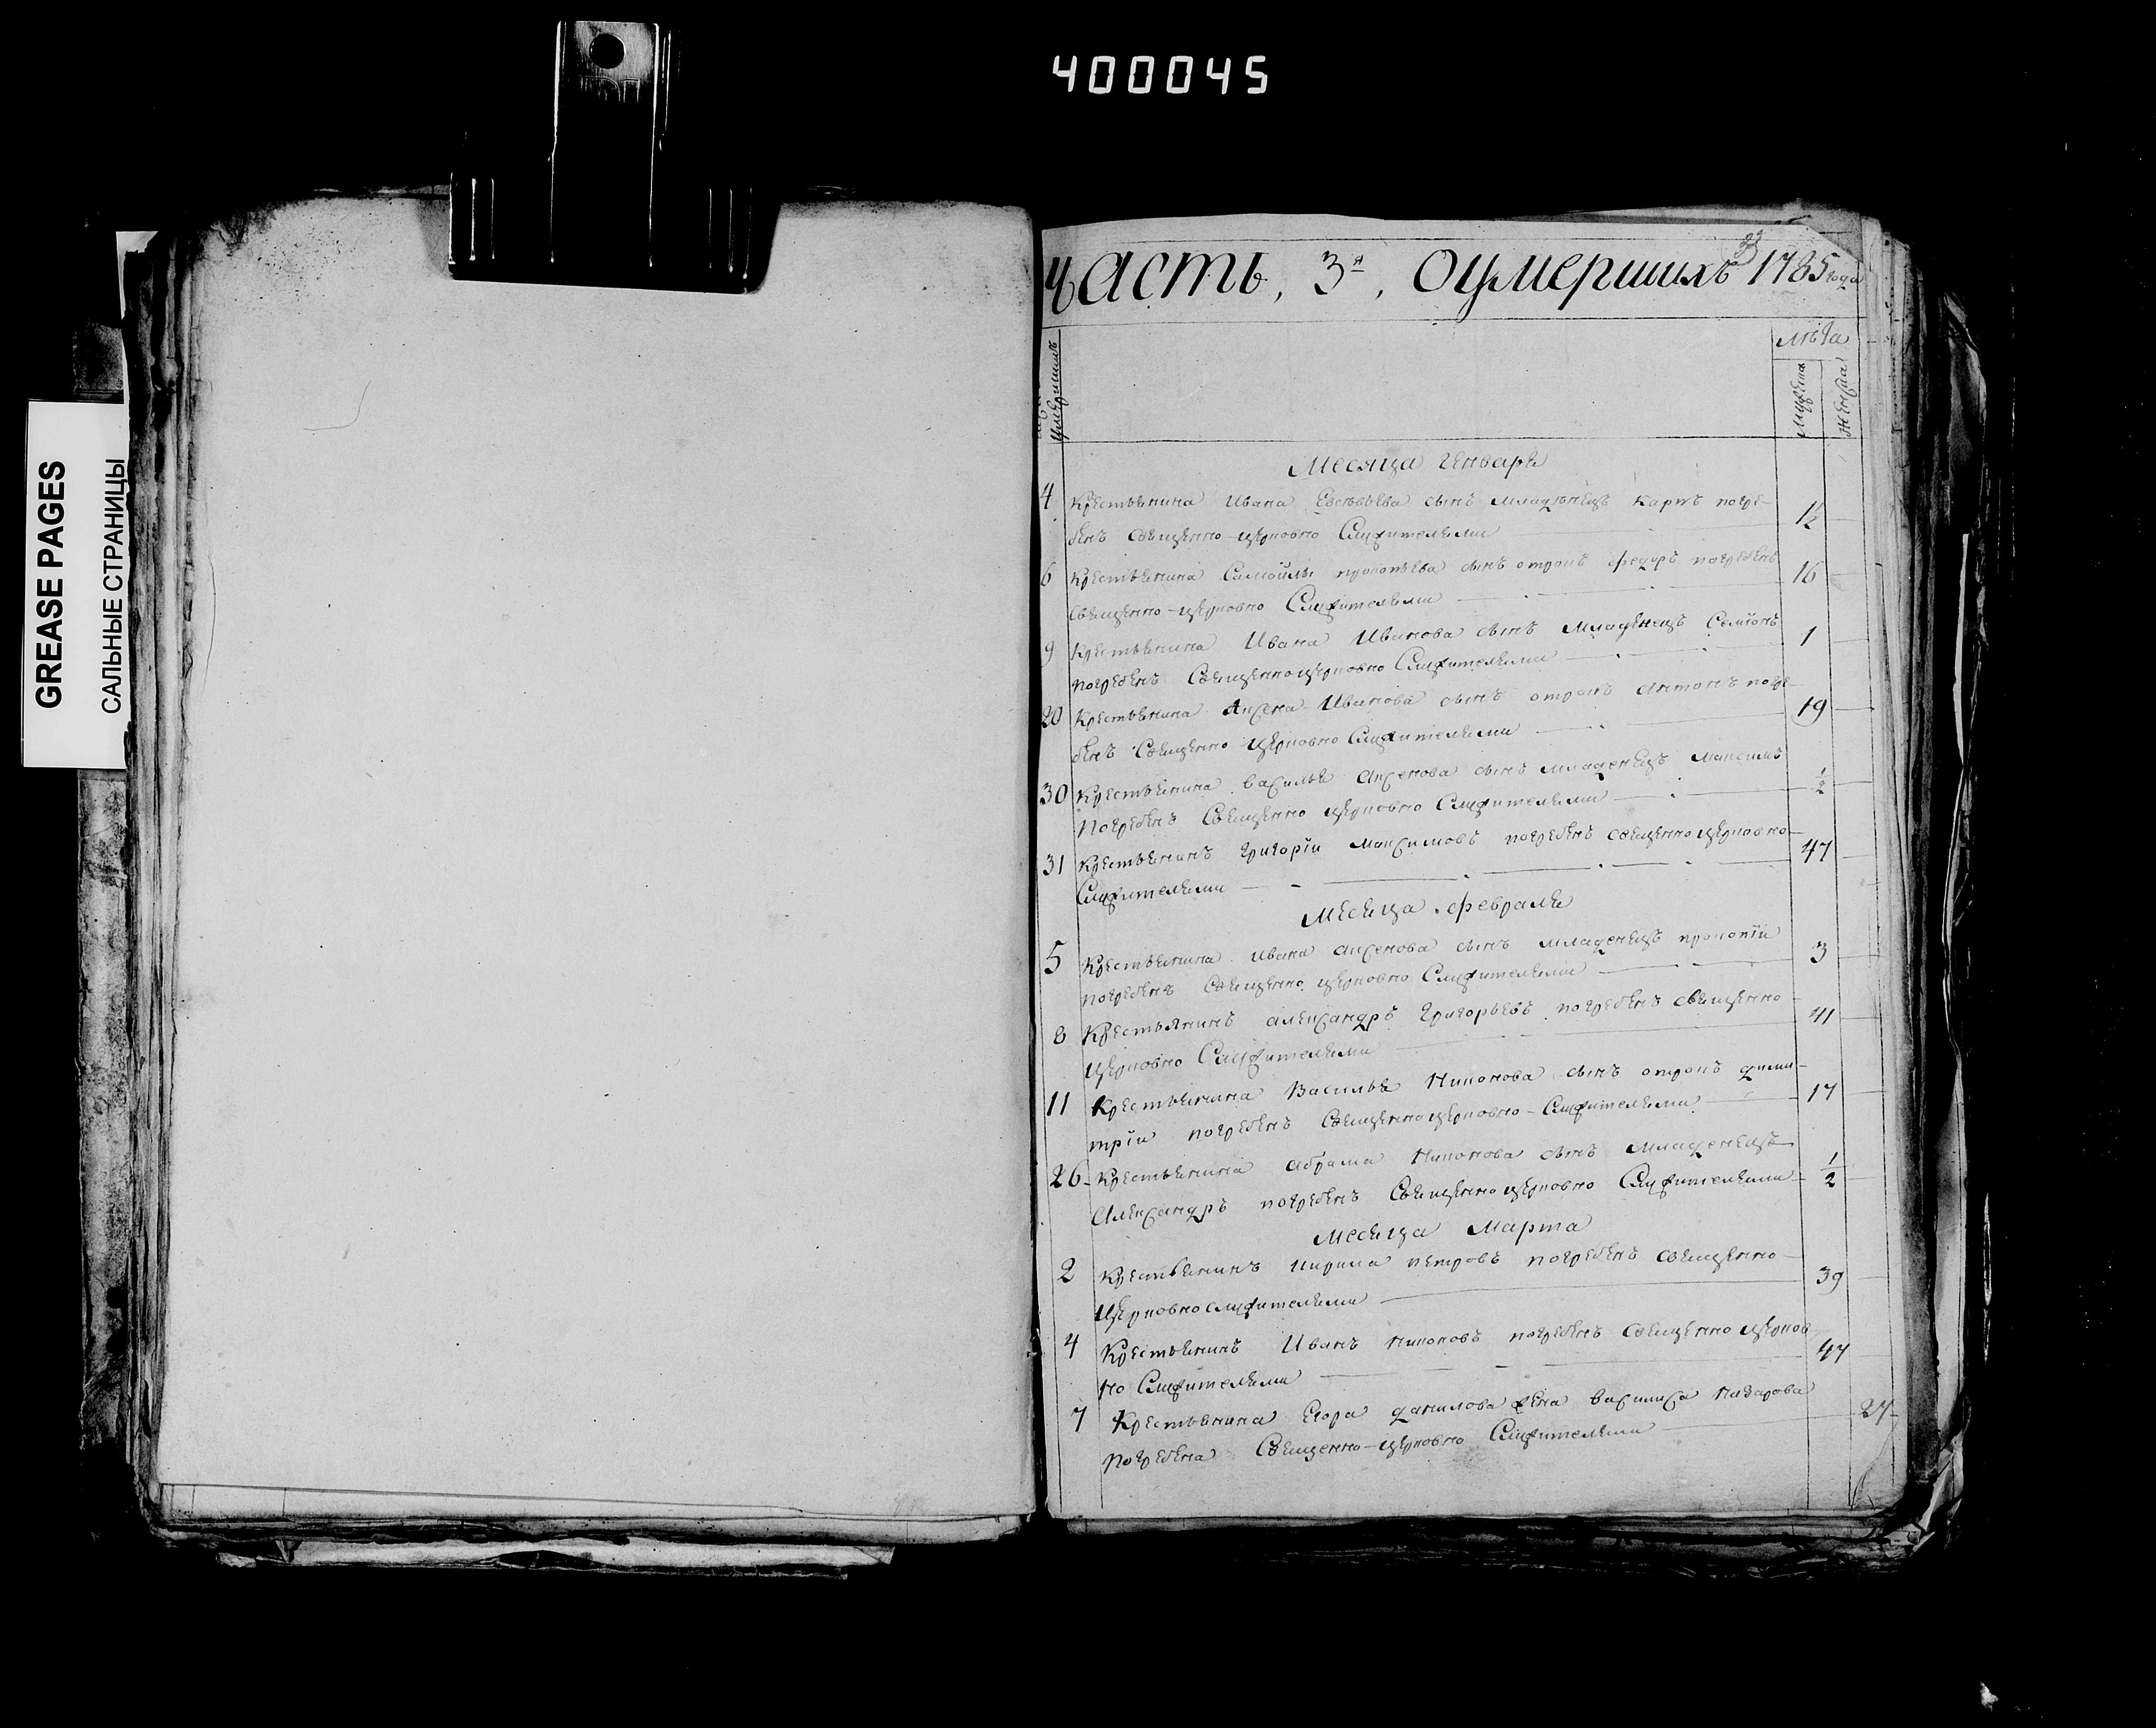 400045
GREASE PAGES
САЛЬНЫЕ СТРАНИЦЫ
33
Часть, 3я, Оумершихъ 1785 года
умершихъ
лѣта
мужеска
женска
Месяца Генваря
4 Крестьянина Ивана Евсевьева сынъ младенецъ Карпъ погре-
бенъ священно-церковно Служителями 1½
6 Крестьянина Самойлы прокопьева сынъ отрокъ федоръ погребенъ
священно-церковно Служителями 16
9 Крестьянина Ивана Иванова сынъ Младенецъ Семіонъ
погребенъ Священноцерковно Служителями 1
20 Крестьянина Аксена Иванова сынъ отрокъ Антонъ погре-
бенъ Священно церковно Служителями 19
30 Крестьянина василья Аксенова сынъ младенецъ Максимъ
Погребенъ Священно церковно Служителями ½
31 Крестьянинъ Григорій Максимовъ погребенъ священноцерковно
Служителями 47
Месяца февраля
5 Крестьянина Ивана Аксенова сынъ младенецъ прокопій
погребенъ Священно церковно Служителями 3
8 Крестьянинъ александръ Григорьевъ погребенъ священно
церковно Служителями 41
11 Крестьянина Василья Никонова сынъ отрокъ дими-
трій погребенъ Священноцерковно-Служителями 17
26 Крестьянина абрама Никонова сынъ Младенецъ
Александръ погребенъ Священноцерковно Служителями ½
Месяца Марта
2 Крестьянинъ Кирила петровъ погребенъ священно-
Церковнослужителями 39
4 Крестьянинъ Иванъ Никоновъ погребенъ священно церков
но Служителями 47
7 Крестьянина Егора данилова жена василиса Назарова
Погребена Священно-церковно Служителями 27